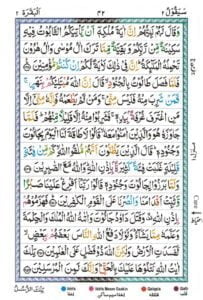 سَيَقُوْلُ ٢ ٤٢ اَلْبَقَرَة ٢
وَقَالَ لَهُمْ نَبِيُّهُمْ اِنَّ اٰيَةَ مُلْكِهٖٓ اَنْ يَّاْتِيَكُمُ التَّابُوْتُ فِيْهِ
سَكِيْنَةٌ مِّنْ رَّبِّكُمْ وَبَقِيَّةٌ مِّمَّا تَرَكَ اٰلُ مُوْسٰى وَاٰلُ هٰرُوْنَ
تَحْمِلُهُ الْمَلٰٓئِكَةُ ؕ اِنَّ فِيْ ذٰلِكَ لَاٰيَةً لَّكُمْ اِنْ كُنْتُمْ
مُّؤْمِنِيْنَ فَلَمَّا فَصَلَ طَالُوْتُ بِالْجُنُوْدِ ۙ قَالَ اِنَّ اللّٰهَ مُبْتَلِيْكُمْ
بِنَهَرٍ ۚ فَمَنْ شَرِبَ مِنْهُ فَلَيْسَ مِنِّيْ ۚ وَمَنْ لَّمْ يَطْعَمْهُ فَاِنَّهٗ مِنِّيْٓ
اِلَّا مَنِ اغْتَرَفَ غُرْفَةًۢ بِيَدِهٖ ۚ فَشَرِبُوْا مِنْهُ اِلَّا قَلِيْلًا مِّنْهُمْ ؕ
فَلَمَّا جَاوَزَهٗ هُوَ وَالَّذِيْنَ اٰمَنُوْا مَعَهٗ ۙ قَالُوْا لَا طَاقَةَ لَنَا الْيَوْمَ بِجَالُوْتَ
وَجُنُوْدِهٖ ؕ قَالَ الَّذِيْنَ يَظُنُّوْنَ اَنَّهُمْ مُّلٰقُوا اللّٰهِ ۙ كَمْ مِّنْ فِئَةٍ
قَلِيْلَةٍ غَلَبَتْ فِئَةً كَثِيْرَةًۢ بِاِذْنِ اللّٰهِ ؕ وَاللّٰهُ مَعَ الصّٰبِرِيْنَ
وَلَمَّا بَرَزُوْا لِجَالُوْتَ وَجُنُوْدِهٖ قَالُوْا رَبَّنَآ اَفْرِغْ عَلَيْنَا صَبْرًا
وَّثَبِّتْ اَقْدَامَنَا وَانْصُرْنَا عَلَى الْقَوْمِ الْكٰفِرِيْنَ
فَهَزَمُوْهُمْ بِاِذْنِ اللّٰهِ ۙ وَقَتَلَ دَاوٗدُ جَالُوْتَ وَاٰتٰىهُ اللّٰهُ الْمُلْكَ
وَالْحِكْمَةَ وَعَلَّمَهٗ مِمَّا يَشَآءُ ؕ وَلَوْلَا دَفْعُ اللّٰهِ النَّاسَ بَعْضَهُمْ بِبَعْضٍ ۙ
لَّفَسَدَتِ الْاَرْضُ وَلٰكِنَّ اللّٰهَ ذُوْ فَضْلٍ عَلَى الْعٰلَمِيْنَ
تِلْكَ اٰيٰتُ اللّٰهِ نَتْلُوْهَا عَلَيْكَ بِالْحَقِّ ؕ وَاِنَّكَ لَمِنَ الْمُرْسَلِيْنَ